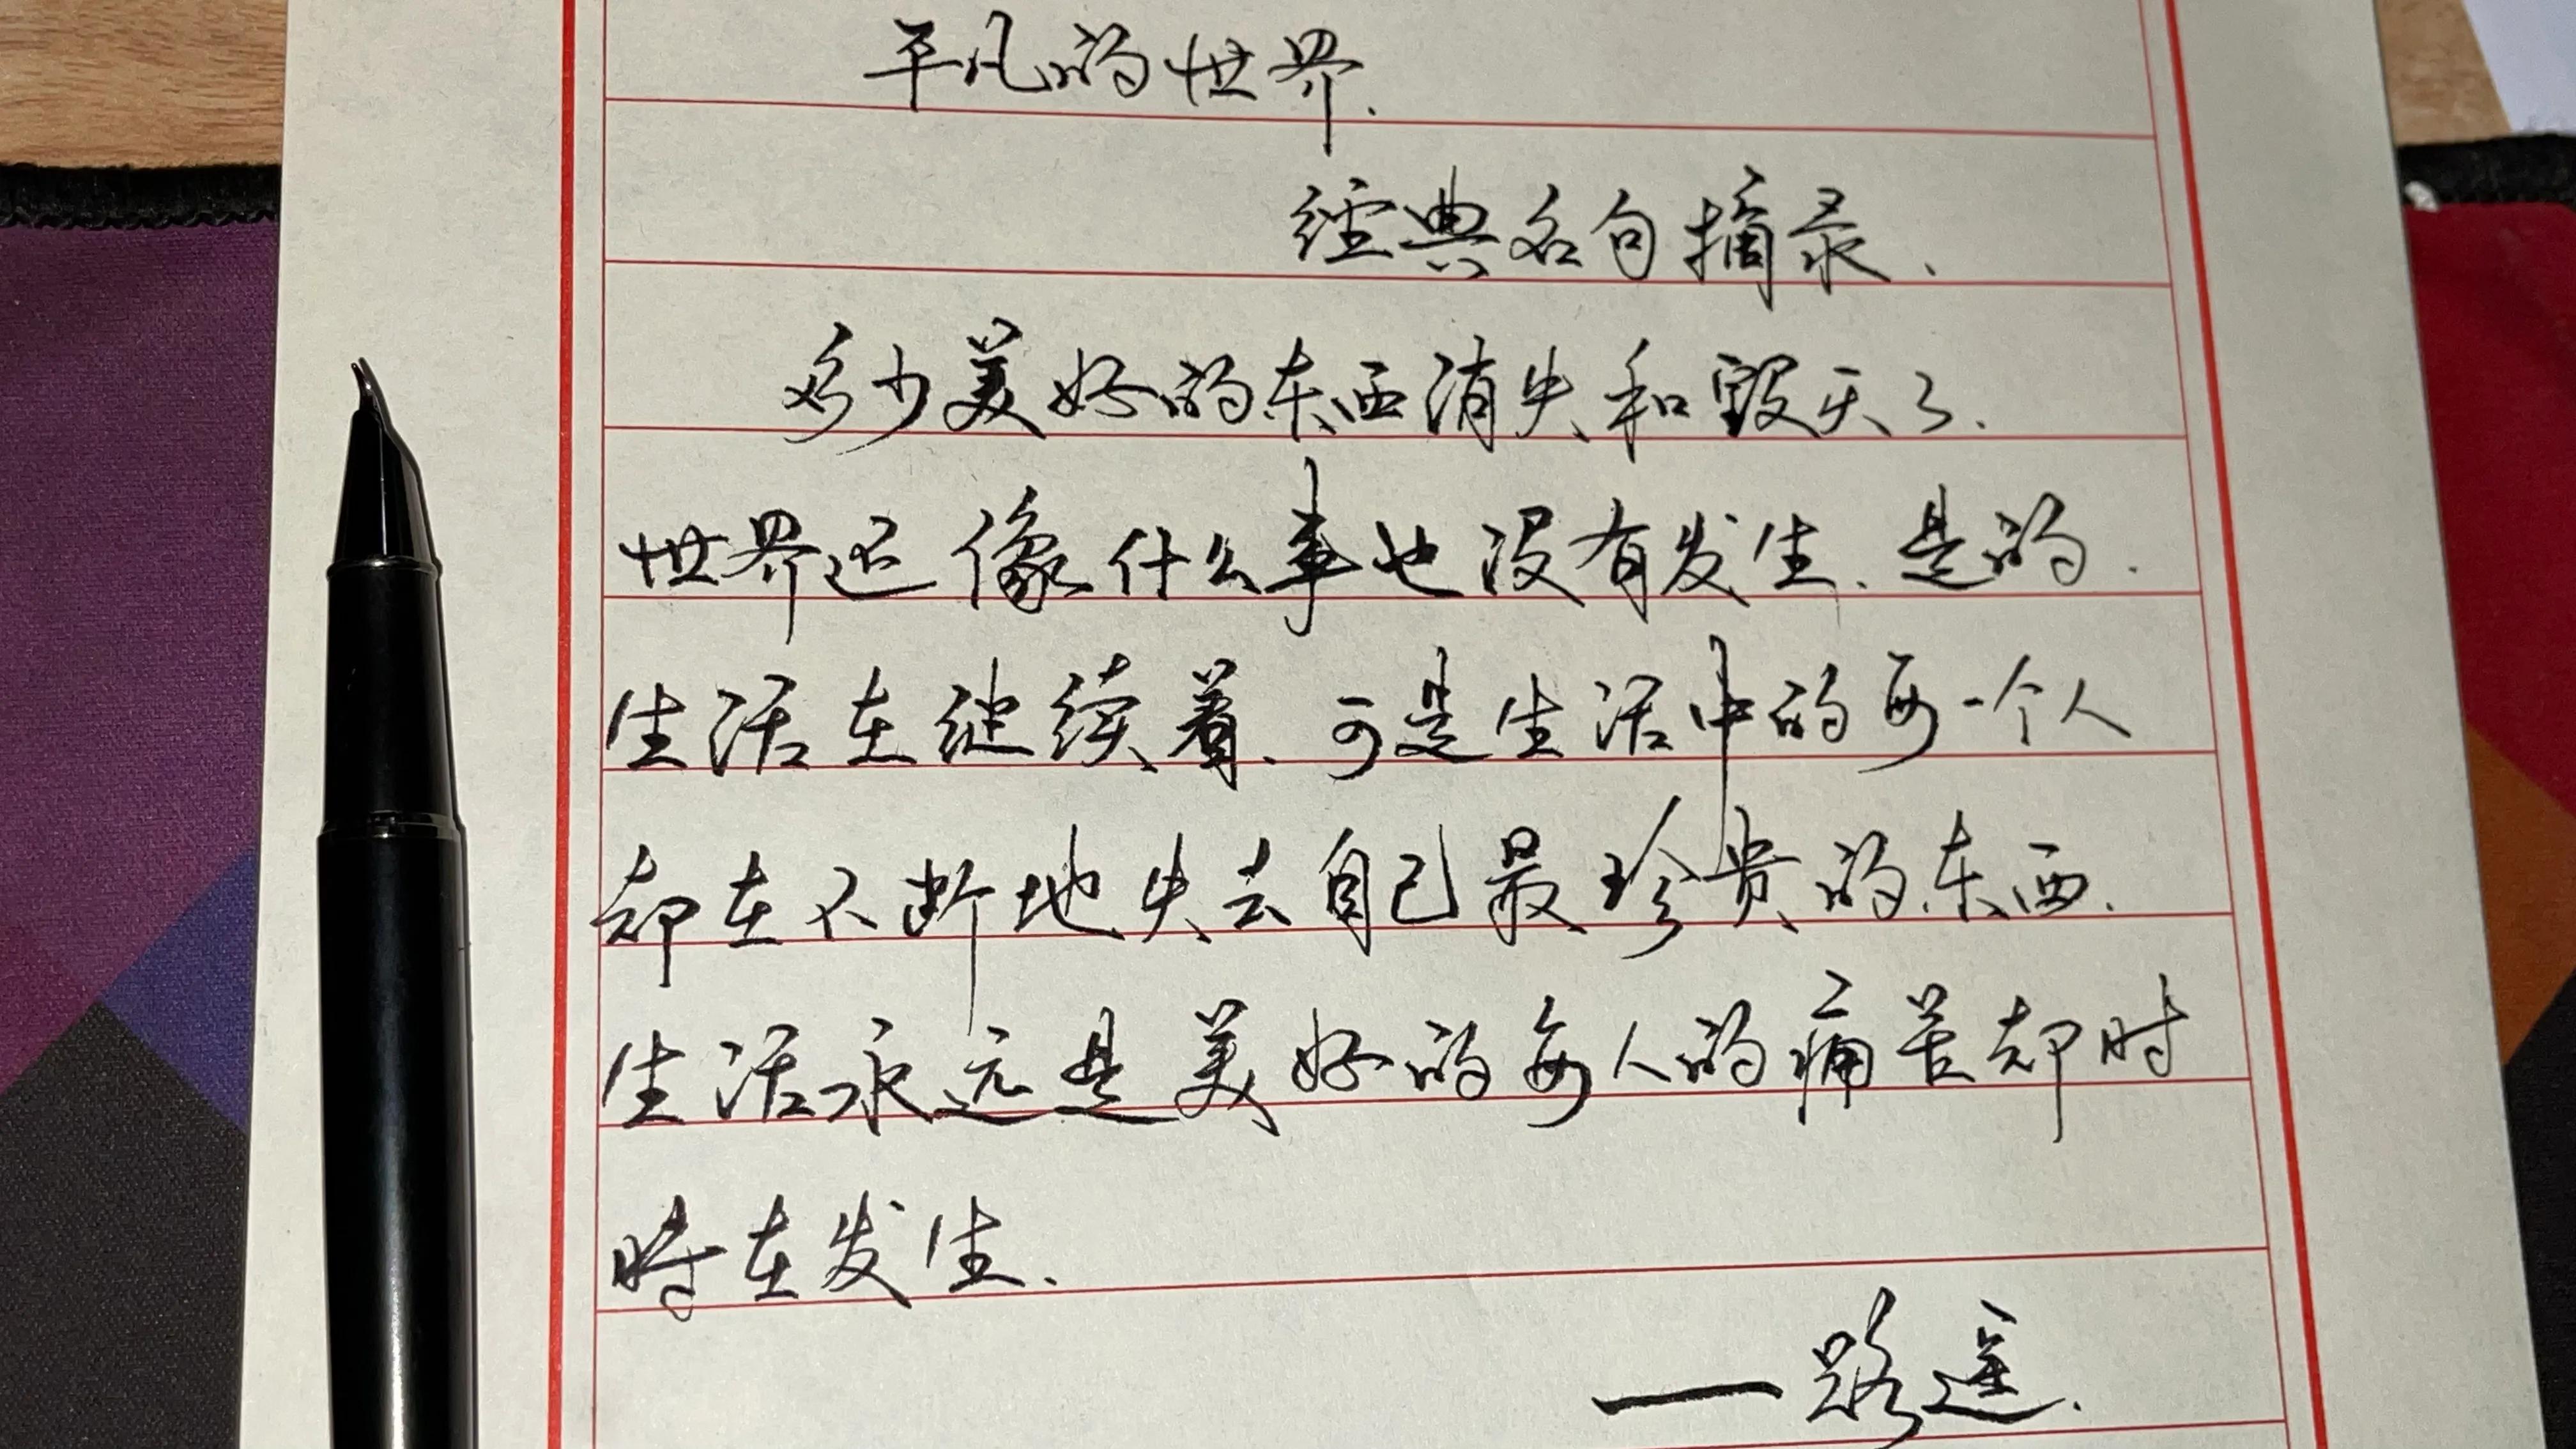 平凡的世界.
经典名句摘录.
多少美好的东西消失和毁灭了.
世界还像什么事也没有发生.是的.
生活在继续着.可是生活中的每一个人
却在不断地失去自己最珍贵的东西.
生活永远是美好的每人的痛苦却时
时在发生.
—路遥.